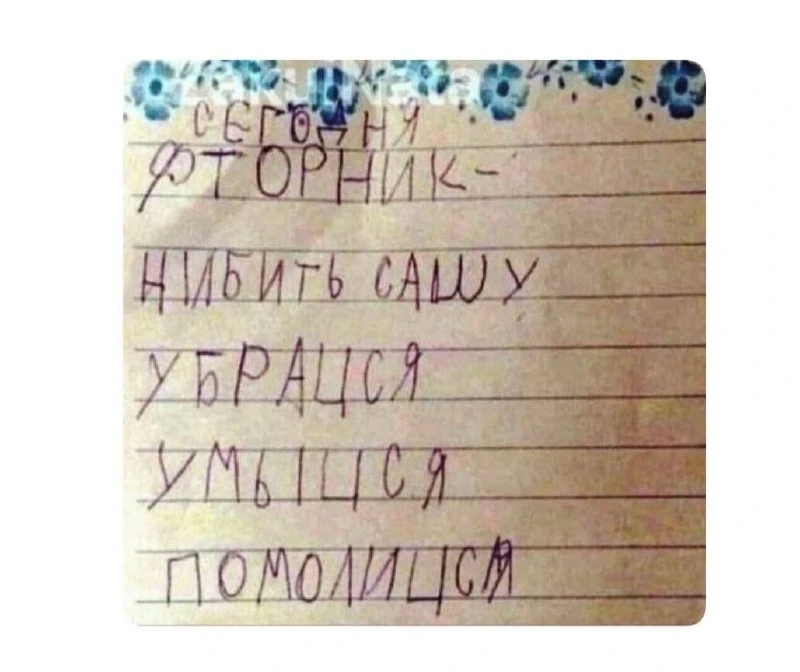 Zakut Nata
СЕГОДНЯ
ФТОРНИК-
НИБИТЬ САШУ
УБРАЦСЯ
УМЫЦСЯ
ПОМОЛИЦСЯ